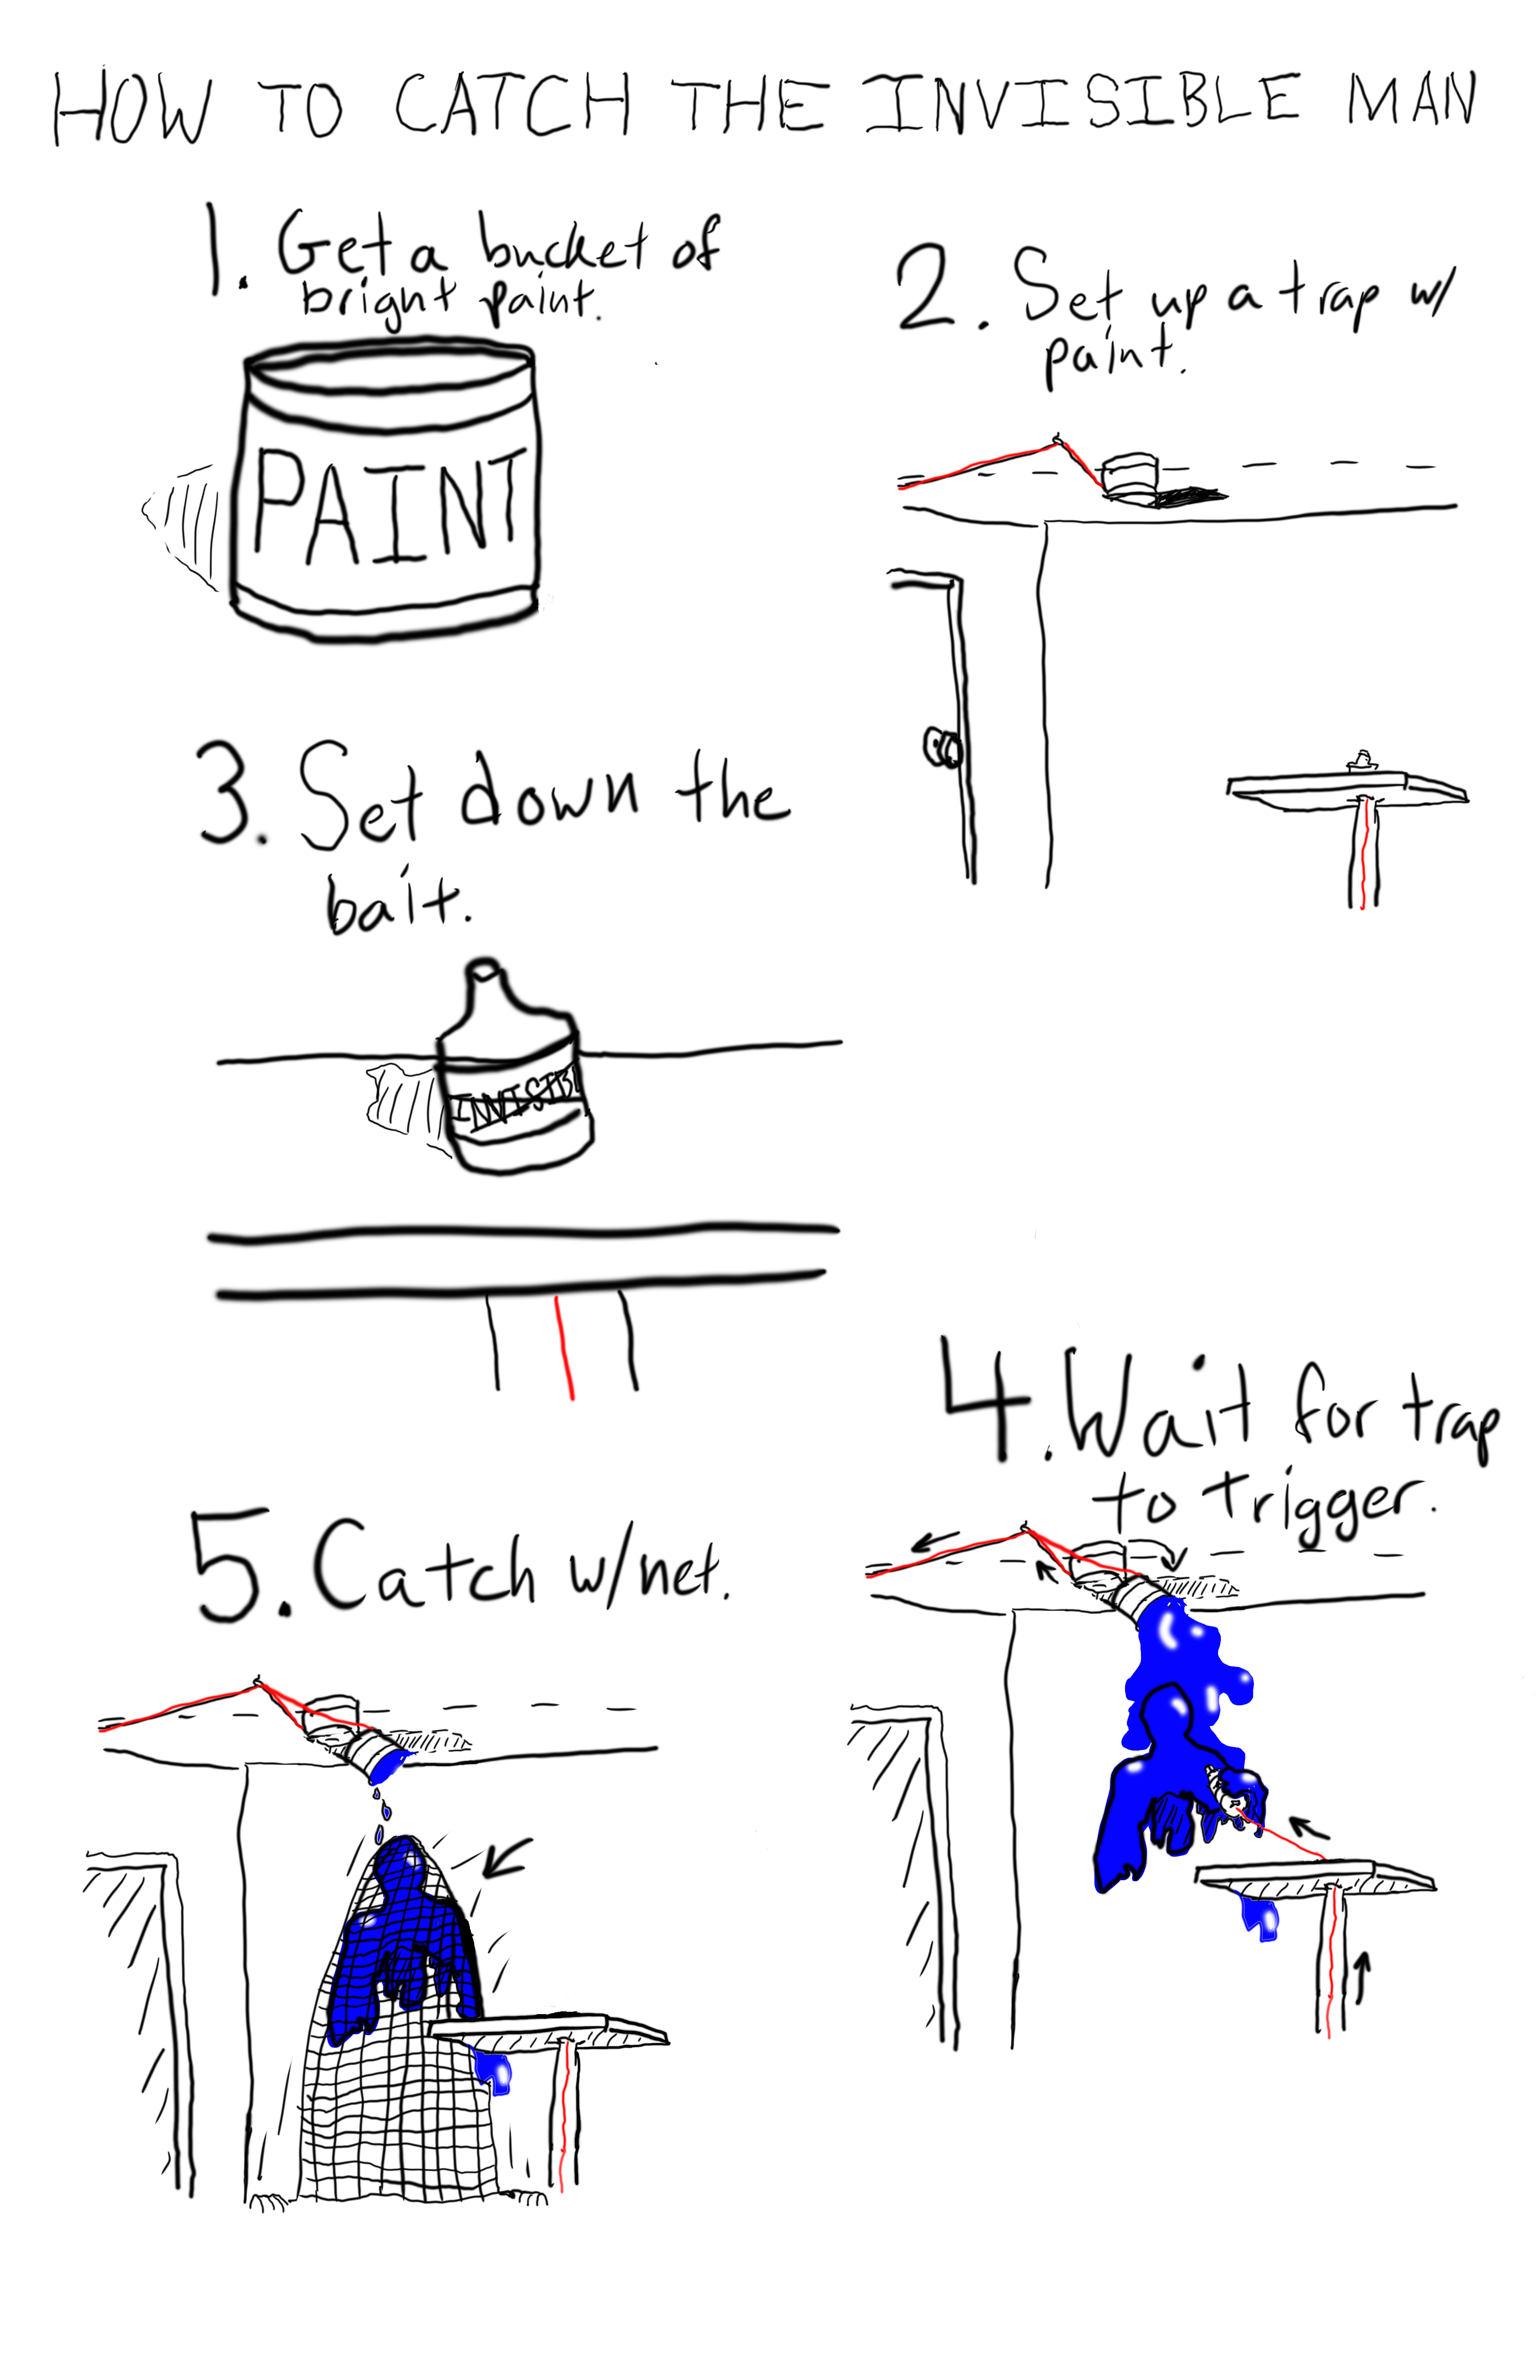 HOW TO CATCH THE INVISIBLE MAN
1. Get a bucket of
bright paint.
PAINT
2. Set up a trap w/
paint.
3. Set down the
bait.
INVISIBL
4. Wait for trap
to trigger.
5. Catch w/net.